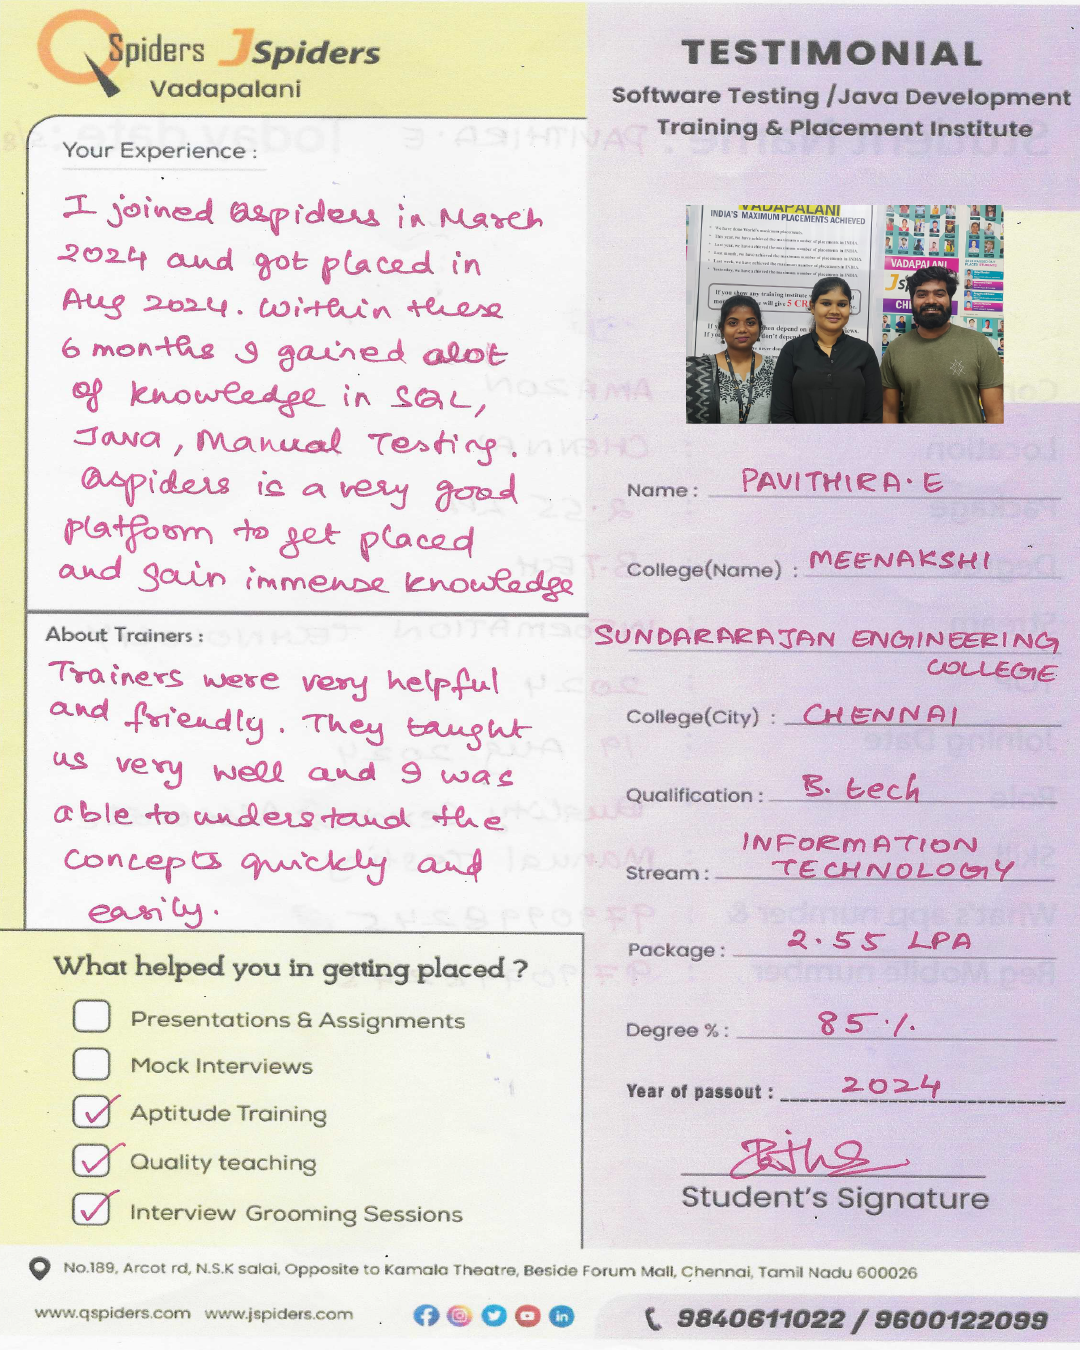 QSpiders JSpiders
Vadapalani
Your Experience :
I joined Qspiders in March
2024 and got placed in
Aug 2024. Within these
6 months I gained alot
of knowledge in SQL,
Java, Manual Testing.
Qspiders is a very good
platform to get placed
and gain immense knowledge
About Trainers :
Trainers were very helpful
and friendly. They taught
us very well and I was
able to understand the
concepts quickly and
easily.
What helped you in getting placed ?
Presentations & Assignments
Mock Interviews
Aptitude Training
Quality teaching
Interview Grooming Sessions
TESTIMONIAL
Software Testing /Java Development
Training & Placement Institute
VADAPALANI
INDIA'S MAXIMUM PLACEMENTS ACHIEVED
If you show any training institute
will give 5 CR
VADAPALANI
Name : PAVITHIRA.E
College(Name) : MEENAKSHI
SUNDARARAJAN ENGINEERING
COLLEGE
College(City) : CHENNAI
Qualification : B.tech
INFORMATION
Stream : TECHNOLOGY
Package : 2.55 LPA
Degree % : 85%
Year of passout : 2024
Student's Signature
No.189, Arcot rd, N.S.K salai, Opposite to Kamala Theatre, Beside Forum Mall, Chennai, Tamil Nadu 600026
www.qspiders.com www.jspiders.com
9840611022 / 9600122099